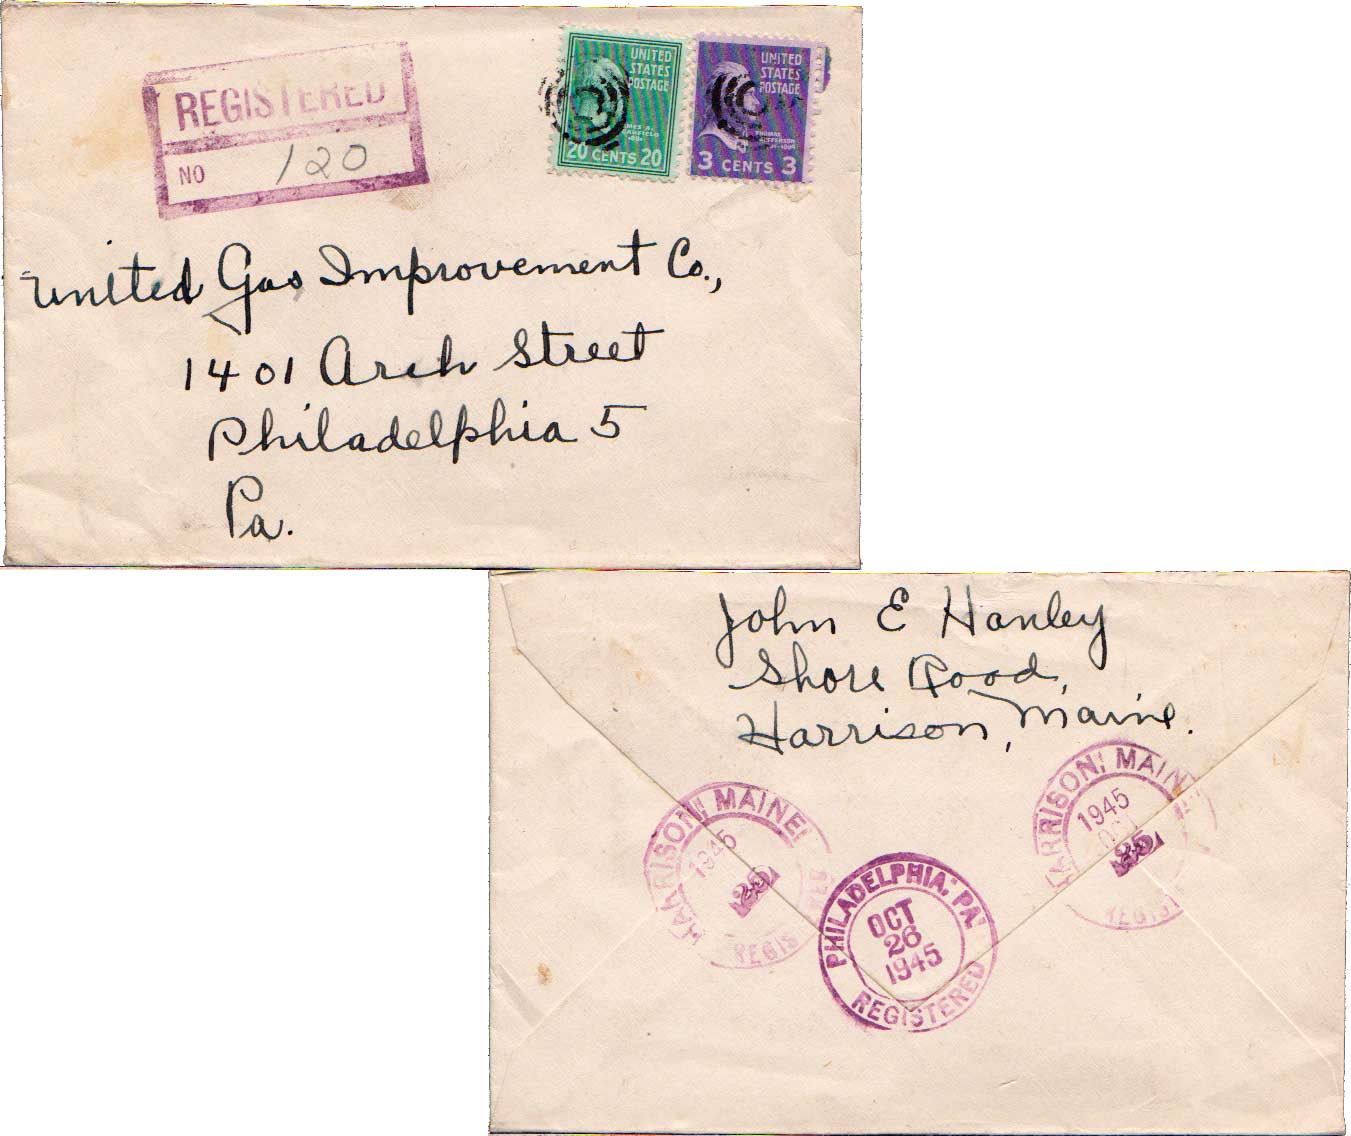 REGISTERED
NO 120
UNITED
STATES
POSTAGE
JAMES A.
GARFIELD
20 CENTS 20
UNITED
STATES
POSTAGE
THOMAS
JEFFERSON
3 CENTS 3
United Gas Improvement Co.,
1401 Arch Street
Philadelphia 5
Pa.
John E Hanley
Shore Road,
Harrison, Maine.
HARRISON, MAINE
1945
25
REGIS
HARRISON, MAIN
1945
OCT
25
REGIS
PHILADELPHIA, PA.
OCT
26
1945
REGISTERED